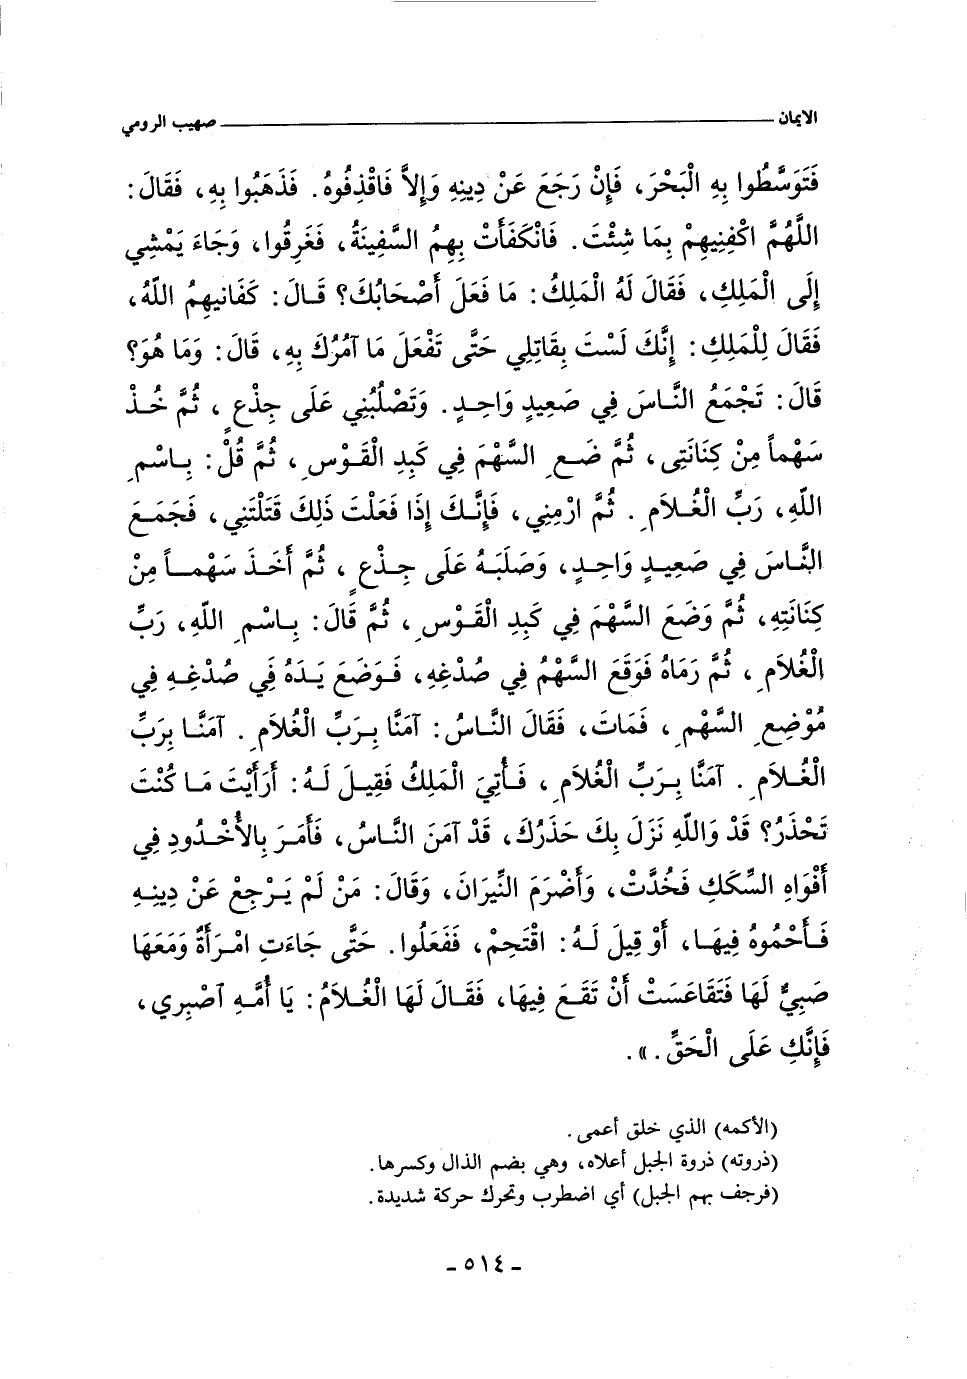 الايمان ـــــــــــــــــــــــــــــــــ صهيب الرومي
فَتَوَسَّطُوا بِهِ الْبَحْرَ، فَإِنْ رَجَعَ عَنْ دِينِهِ وَإِلاَّ فَاقْذِفُوهُ. فَذَهَبُوا بِهِ، فَقَالَ:
اللَّهُمَّ اكْفِنِيهِمْ بِمَا شِئْتَ. فَانْكَفَأَتْ بِهِمُ السَّفِينَةُ، فَغَرِقُوا، وَجَاءَ يَمْشِي
إِلَى الْمَلِكِ، فَقَالَ لَهُ الْمَلِكُ: مَا فَعَلَ أَصْحَابُكَ؟ قَالَ: كَفَانِيهِمُ اللّهُ،
فَقَالَ لِلْمَلِكِ: إِنَّكَ لَسْتَ بِقَاتِلِي حَتَّى تَفْعَلَ مَا آمُرُكَ بِهِ، قَالَ: وَمَا هُوَ؟
قَالَ: تَجْمَعُ النَّاسَ فِي صَعِيدٍ وَاحِدٍ. وَتَصْلُبُنِي عَلَى جِذْعٍ، ثُمَّ خُذْ
سَهْماً مِنْ كِنَانَتِى، ثُمَّ ضَعِ السَّهْمَ فِي كَبِدِ الْقَوْسِ، ثُمَّ قُلْ: بِاسْمِ
اللّهِ، رَبِّ الْغُلاَمِ. ثُمَّ ارْمِنِي، فَإِنَّكَ إِذَا فَعَلْتَ ذَلِكَ قَتَلْتَنِي، فَجَمَعَ
النَّاسَ فِي صَعِيدٍ وَاحِدٍ، وَصَلَبَهُ عَلَى جِذْعٍ، ثُمَّ أَخَذَ سَهْماً مِنْ
كِنَانَتِهِ، ثُمَّ وَضَعَ السَّهْمَ فِي كَبِدِ الْقَوْسِ، ثُمَّ قَالَ: بِاسْمِ اللّهِ، رَبِّ
الْغُلاَمِ، ثُمَّ رَمَاهُ فَوَقَعَ السَّهْمُ فِي صُدْغِهِ، فَوَضَعَ يَدَهُ فِي صُدْغِهِ فِي
مُوْضِعِ السَّهْمِ، فَمَاتَ، فَقَالَ النَّاسُ: آمَنَّا بِرَبِّ الْغُلاَمِ. آمَنَّا بِرَبِّ
الْغُلاَمِ. آمَنَّا بِرَبِّ الْغُلاَمِ، فَأُتِيَ الْمَلِكُ فَقِيلَ لَهُ: أَرَأَيْتَ مَا كُنْتَ
تَحْذَرُ؟ قَدْ وَاللّهِ نَزَلَ بِكَ حَذَرُكَ، قَدْ آمَنَ النَّاسُ، فَأَمَرَ بِالأُخْدُودِ فِي
أَفْوَاهِ السِّكَكِ فَخُدَّتْ، وَأَضْرَمَ النِّيرَانَ، وَقَالَ: مَنْ لَمْ يَرْجِعْ عَنْ دِينِهِ
فَأَحْمُوهُ فِيهَا، أَوْ قِيلَ لَهُ: اقْتَحِمْ، فَفَعَلُوا. حَتَّى جَاءَتِ امْرَأَةٌ وَمَعَهَا
صَبِيٌّ لَهَا فَتَقَاعَسَتْ أَنْ تَقَعَ فِيهَا، فَقَالَ لَهَا الْغُلاَمُ: يَا أُمَّهِ آصْبِرِي،
فَإِنَّكِ عَلَى الْحَقِّ.».
(الأكمه) الذي خلق أعمى.
(ذروته) ذروة الجبل أعلاه، وهي بضم الذال وكسرها.
(فرجف بهم الجبل) أي اضطرب وتحرك حركة شديدة.
- ٥١٤ -